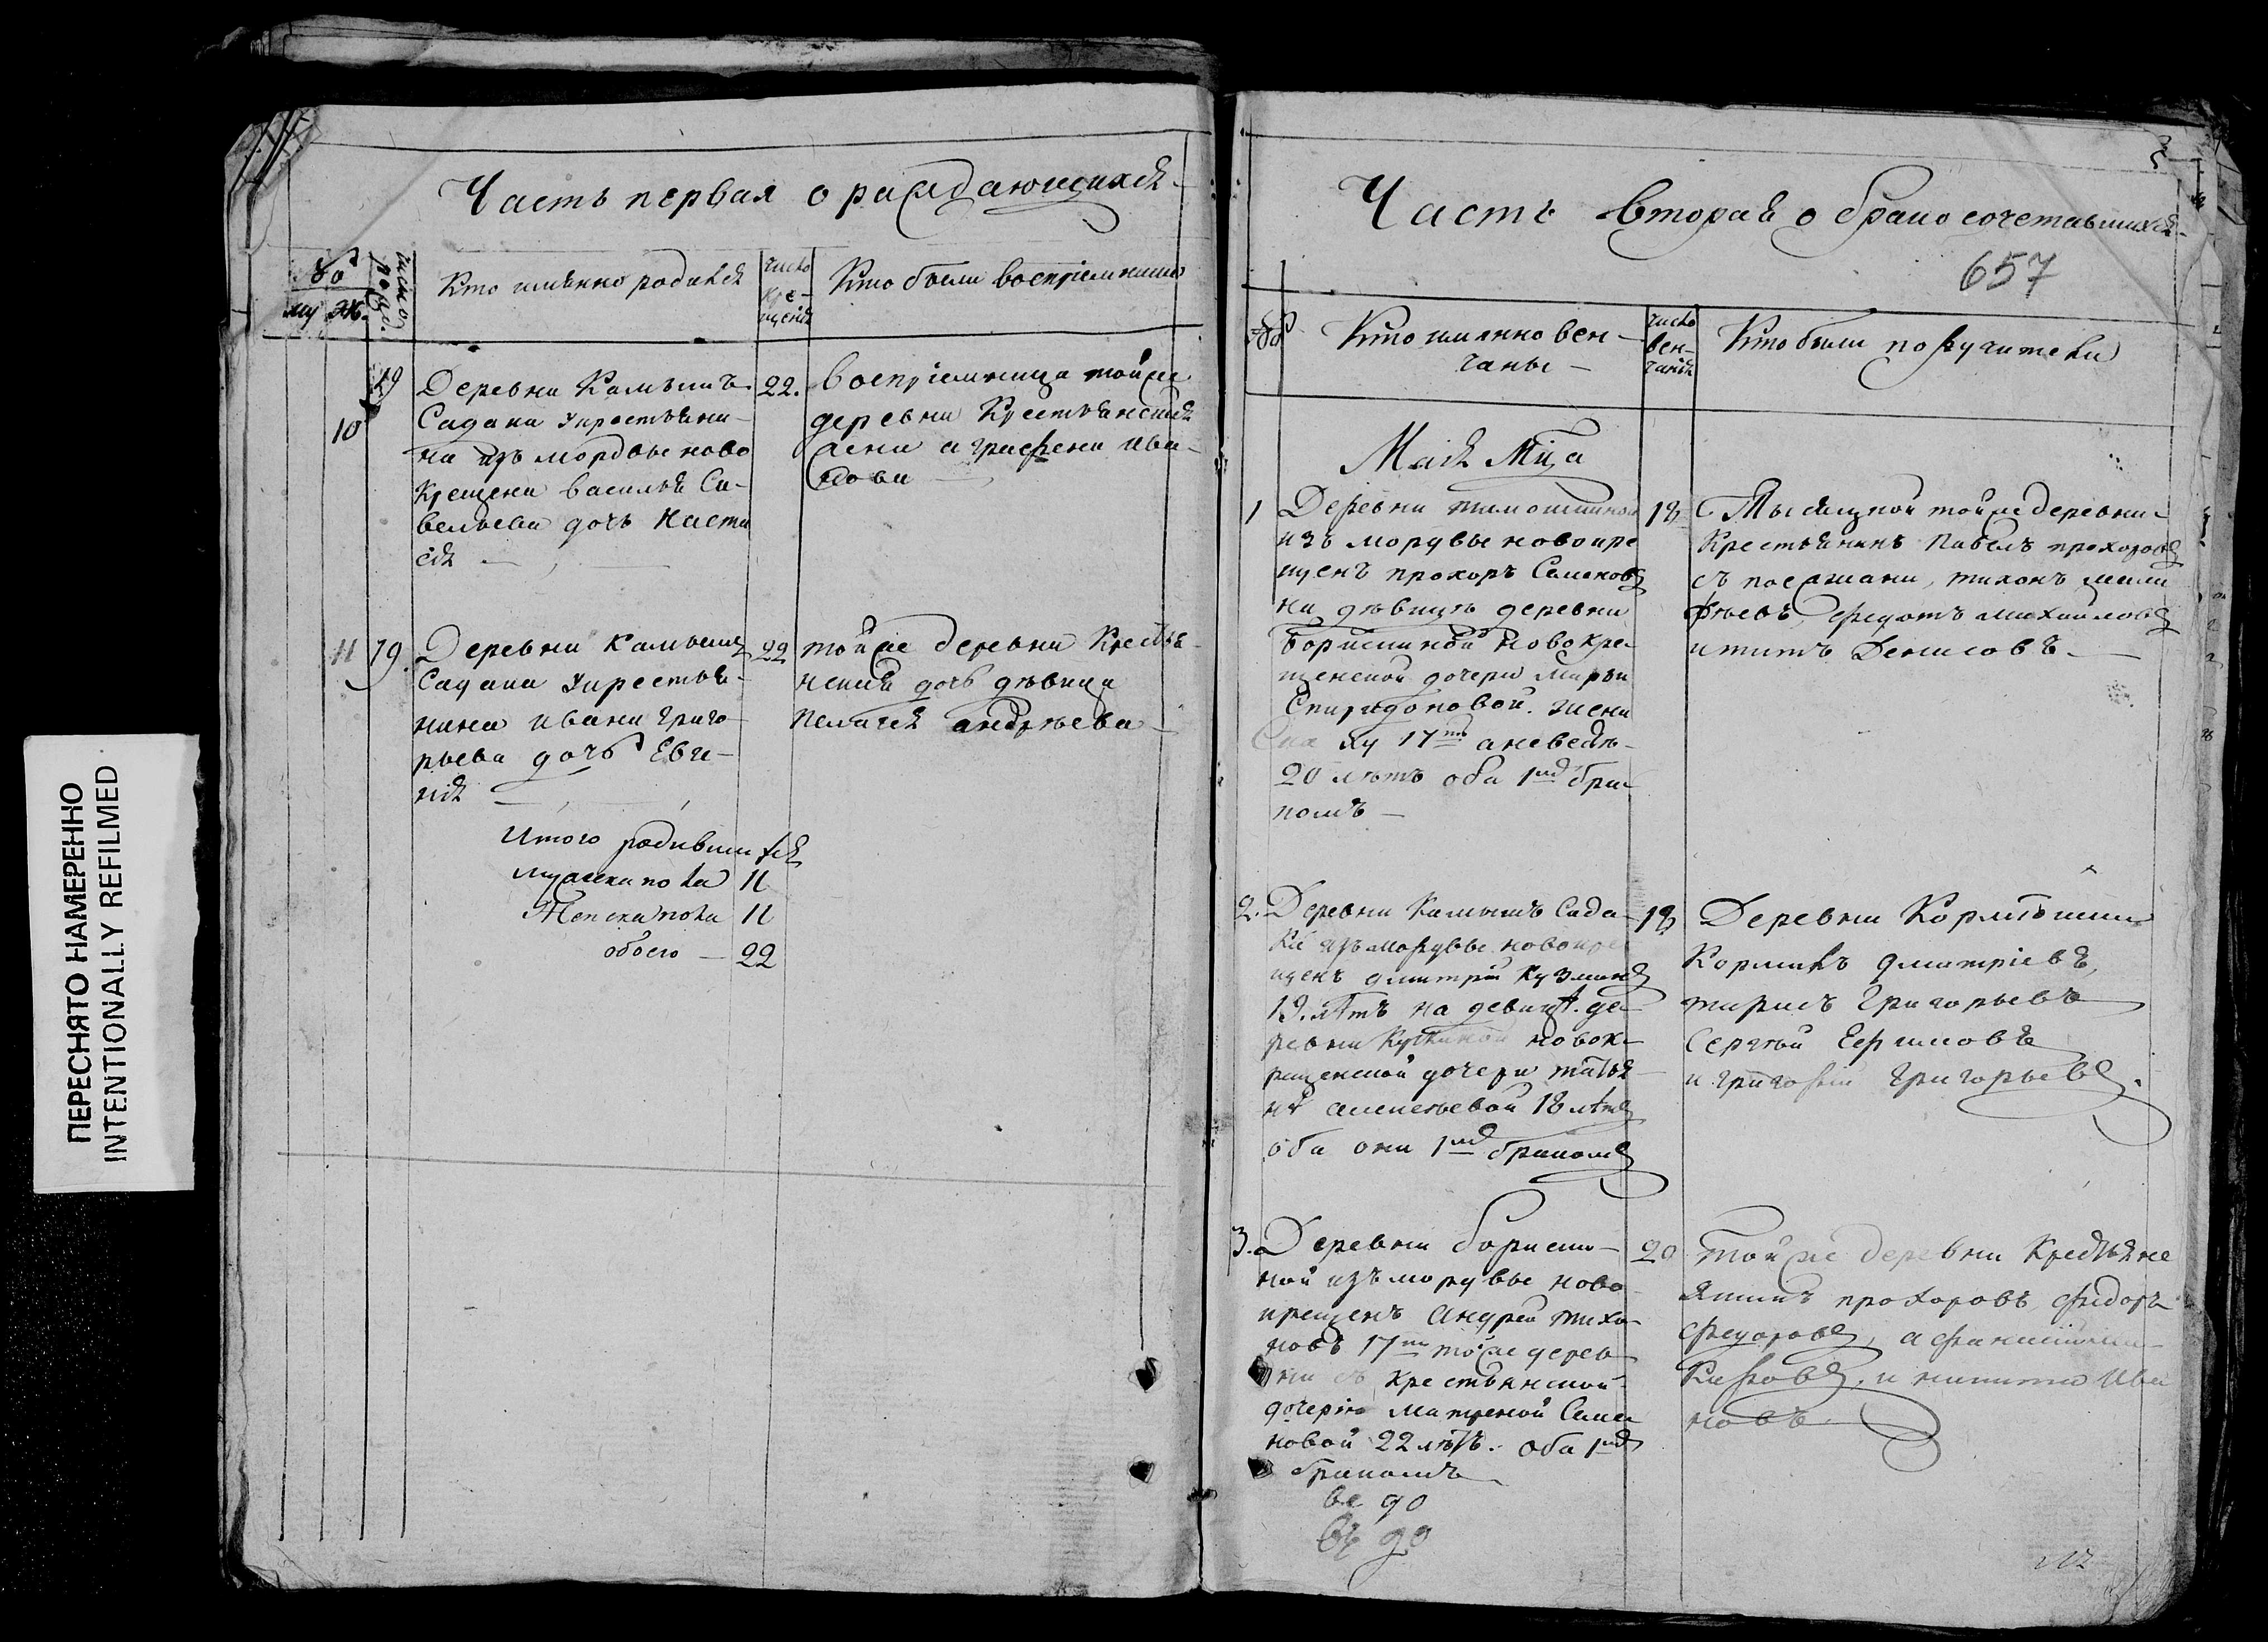 ПЕРЕСНЯТО НАМЕРЕННО
INTENTIONALLY REFILMED
Часть первая о раждающихся
му ж.
число рожде.
Кто имѣнно родился
число кре-
щенія
Кто были воспріемники
10
19
Деревни Камышъ
Садака у крестьяни-
на изъ мордвы ново
крещена Василья Са-
вельева дочь Наста
сія
22.
Воспріемница тойже
деревни крестьянская
жена аграфена ива-
нова
11
19.
Деревни Камыш
Садака у крестья-
нина ивана григо
рьева дочь Евге-
нія
22
тойже деревни крестья-
нская дочь дѣвица
пелагея андрѣева
Итого родившихся
мужеска пола 11
Женска пола 11
обоего — 22
Часть вторая о бракосочетавшихся
657
Кто имянно вен-
чаны
число
вен-
чанія
Кто были поручители
Маія Мца
1
Деревни тимошкиной
изъ мордвы новокре
щенъ прохоръ Семеновъ
на дѣвицѣ деревни
Борискиной новокре-
щенской дочери марѳи
Спиридоновой. жени
ху 17 а невестѣ
20 лѣтъ оба 1мъ бра
комъ
18
С Тысяцкой тойже деревни
крестьянинъ Павелъ прохоровъ
съ поезжани, тихонъ
федотъ михаиловъ
и титъ Денисовъ
2.
Деревни Камышъ Сада-
ка изъ мордвы новокре
щенъ дмитрій Кузминъ
19. лѣтъ на девицѣ де-
ревни новок-
рещенской дочери татья
нѣ алексѣевой 18 лѣтъ
оба они 1мъ бракомъ
18
Деревни
Кормилъ дмитріевъ,
тарасъ григорьевъ
Сергѣй Ефимовъ
и григорій григорьевъ.
3.
Деревни Борискин-
ной изъ мордвы ново
крещенъ андрей тихо-
новъ 17 тойже дерев
ни съ крестьянской
дочерію матреной Семе
новой 22 лѣтъ. оба 1мъ
бракомъ
20
тойже деревни крестьяне
якимъ прохоровъ, фидоръ
федоровъ, афанасій
и никита ива
новъ